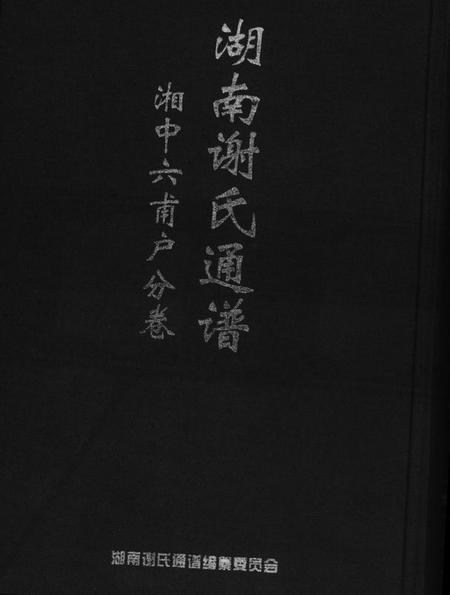 湖南谢氏通谱
湘中六甫户分卷
湖南谢氏通谱编纂委员会